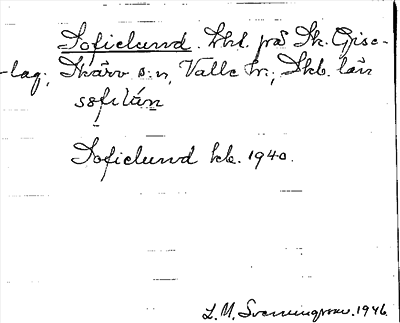 Sofielund. Lht. på St. Gise-
lag; Skärv s:n, Valle hr; Skb. län
sɷfɩlán
Sofielund kb. 1940.
L. M. Svenningsson. 1946.